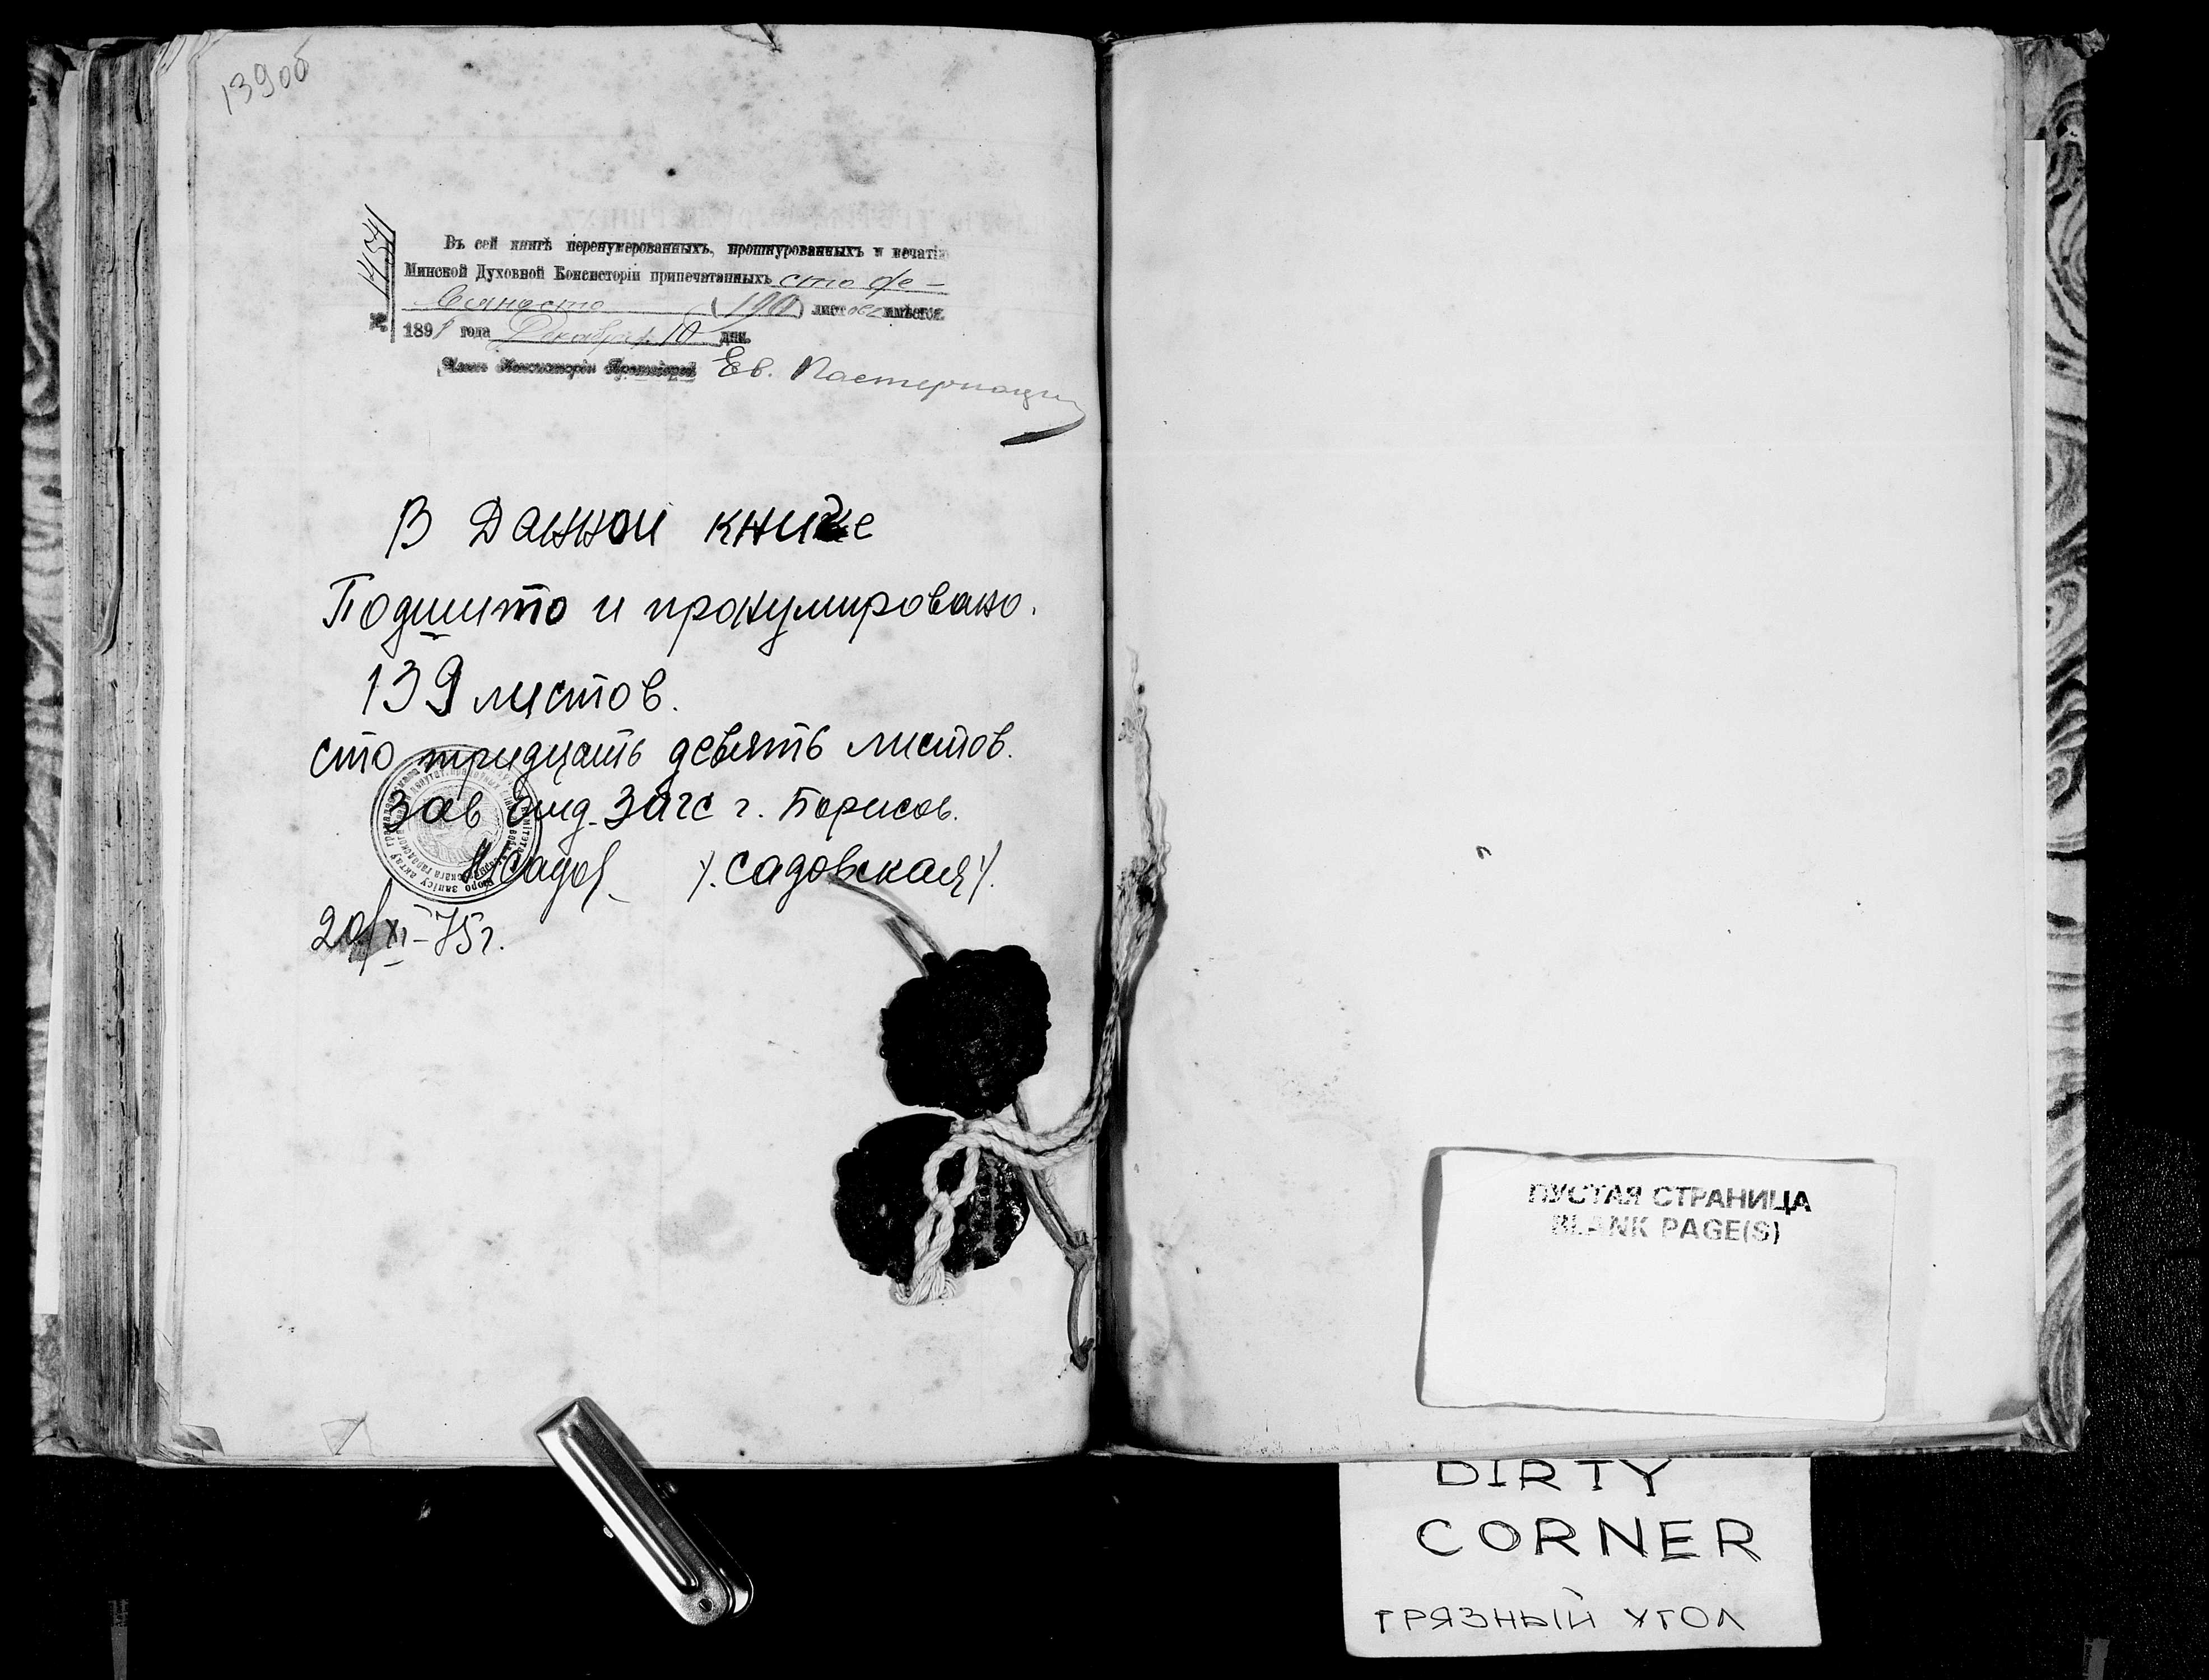 139об
Въ сей книгѣ перенумерованныхъ, прошнурованныхъ и печатію
Минской Духовной Консисторіи припечатанныхъ сто де-
вяносто (190) листовъ имѣется.
№ 1454
189 года Декабря 10 дня.
Членъ Консисторіи Протоіерей Ев.
В Данной книге
Подшито и пронумировано.
139 листов.
сто тридцать девять листов.
Зав отд. Загс г. Борисов.
/. Садовская /.
20/XI-75г.
ПУСТАЯ СТРАНИЦА
BLANK PAGE(S)
DIRTY
CORNER
ГРЯЗНЫЙ УГОЛ